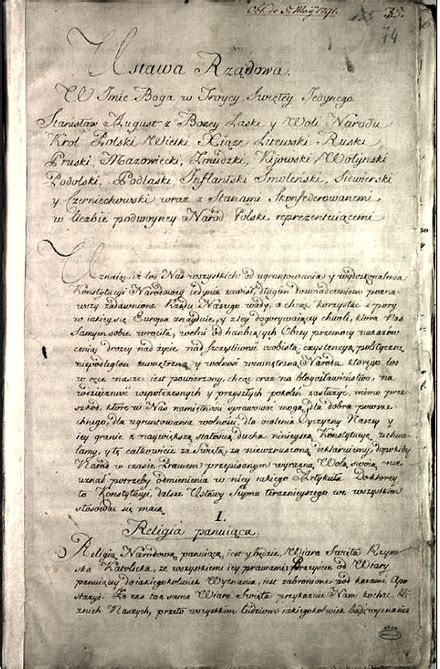 Obl. do 5. Maij 1791.
74
Ustawa Rządowa.
W Imie Boga w Troycy Swiętey Jedynego.
Stanisław August z Bozey Łaski y Woli Narodu
Krol Polski Wielki Xiąze Litewski Ruski
Pruski, Mazowiecki, Zmudzki, Kijowski Wołynski
Podolski, Podlaski Inflantski Smolenski, Siewierski
y Czerniechowski wraz z Stanami Skonfederowanemi
w liczbie podwoyney Narod Polski reprezentuiącemi
Uznaiąc, iż los Nas wszystkich od ugruntowania y wydoskonalenia
Konstytucyi Narodowey iedynie zawisł, długim doswiadczeniem pozna-
wszy zadawnione Rządu Naszego wady, a chcąc korzystac z pory
w iakiey się Europa znayduie, y z tey dogorywaiącey chwili, ktora Nas
Samym sobie wrociła, wolni od hanbiących Obcey przemocy nakazow
ceniąc drozey nad zycie, nad szczęsliwosc osobistą, exystencyą polityczną
niepodległosc zewnętrzną y wolnosc wewnętrzną Narodu, ktorego los
w ręce nasze iest powierzony, chcąc oraz na błogosławienstwo, na
wdzięcznosc wspołczesnych y przyszłych pokolen zasłuzyc, mimo prze-
szkod, ktore w Nas namiętnosci sprawowac mogą, dla dobra powsze-
chnego, dla ugruntowania wolnosci, dla ocalenia Oyczyzny Naszey y
iey granic z naywiększą stałoscią ducha ninieyszą Konstytucyę uchwa-
lamy, y tę całkowicie za swiętą, za niewzruszoną deklaruiemy, dopokiby
Narod w czasie Prawem przepisanym wyrazną Wolą swoią nie
uznał potrzeby odmienienia w niey iakiego Artykułu. Do ktorey
to Konstytucyi, dalsze Ustawy Seymu teraznieyszego we wszystkim
stosowac się maią
I.
Religia panuiąca.
Religią Narodową panuiącą iest y będzie, Wiara Swięta Rzym-
ska Katolicka, ze wszystkiemi iey prawami. Przeyscie od Wiary
panuiącey do iakiegokolwiek Wyznania, iest zabronione pod karami Apo-
stazyi. Ze zas ta sama Wiara Swięta przykazuie Nam kochac bli-
znich Naszych, przeto wszystkim ludziom iakiegokolwiek bądz wyznania